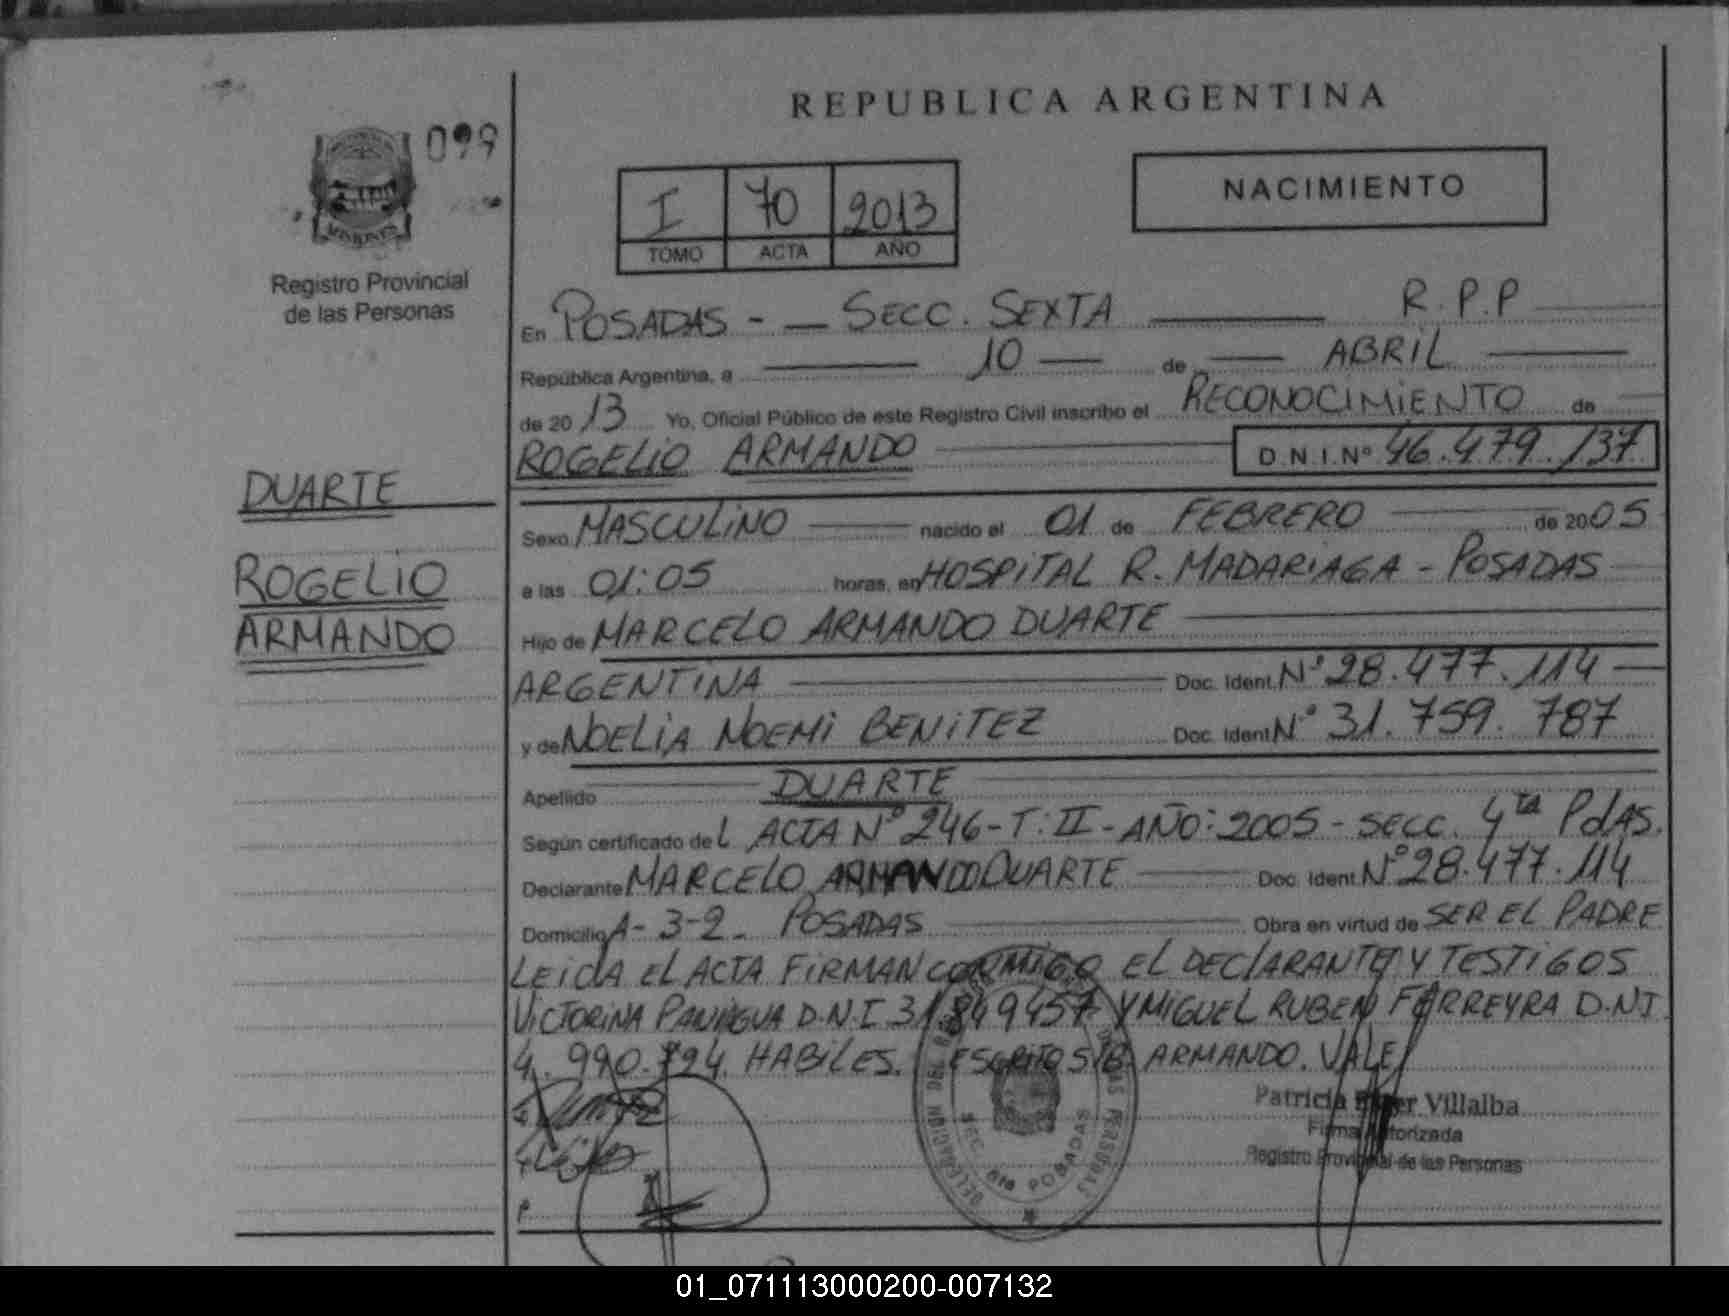 REPUBLICA ARGENTINA
099
MISIONES
Registro Provincial
de las Personas
I 70 2013
TOMO ACTA AÑO
NACIMIENTO
En POSADAS - — SECC. SEXTA — R.P.P
República Argentina, a — 10 — de — ABRIL —
de 2013 Yo, Oficial Público de este Registro Civil inscribo el RECONOCIMIENTO de
ROGELIO ARMANDO D.N.I.Nº 46.479.137
DUARTE
ROGELIO
ARMANDO
Sexo MASCULINO nacido el 01 de FEBRERO de 2005
a las 01:05 horas, en HOSPITAL R. MADARIAGA - POSADAS
Hijo de MARCELO ARMANDO DUARTE
ARGENTINA Doc. Ident. Nº 28.477.114
y de NOELIA NOEMI BENITEZ Doc. Ident Nº 31.759.787
Apellido DUARTE
Según certificado del ACTA Nº 246-T:II-AÑO:2005-SECC. 4ta PdAS.
Declarante MARCELO ARMANDO DUARTE Doc. Ident. Nº 28.477.114
Domicilio A-3-2. POSADAS Obra en virtud de SER EL PADRE
LEIDA EL ACTA FIRMAN CONMIGO EL DECLARANTE Y TESTIGOS
VICTORINA PANIAGUA D.N.I 31849457 Y MIGUEL RUBEN FERREYRA D.N.I
4.990.794. HABILES. ESCRITO S/B ARMANDO. VALE
DELEGACION DE REG. DE LAS PERSONAS
SEC. 6ta POSADAS
Patricia Villalba
Firma Autorizada
Registro Provincial de las Personas
01_071113000200-007132